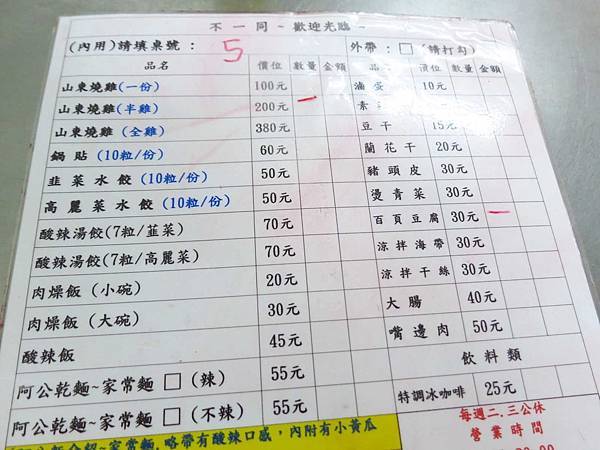 不一同~歡迎光臨~
(內用)請填桌號：5 外帶：□(請打勾)
品名 價位 數量 金額 品 價位 數量 金額
山東燒雞(一份) 100元 滷蛋 10元
山東燒雞(半雞) 200元 一 素
山東燒雞 (全雞) 380元 豆干 15元
鍋貼 (10粒/份) 60元 蘭花干 20元
韭菜水餃 (10粒/份) 50元 豬頭皮 30元
高麗菜水餃 (10粒/份) 50元 燙青菜 30元
酸辣湯餃(7粒/韮菜) 70元 百頁豆腐 30元 一
酸辣湯餃(7粒/高麗菜) 70元 涼拌海帶 30元
肉燥飯 (小碗) 20元 涼拌干絲 30元
肉燥飯 (大碗) 30元 大腸 40元
酸辣飯 45元 嘴邊肉 50元
阿公乾麵~家常麵 □ (辣) 55元 飲料類
阿公乾麵~家常麵 □ (不辣) 55元 特調冰咖啡 25元
家常麵.略帶有酸辣口感，內附有小黃瓜
每週二.三公休
營業時間